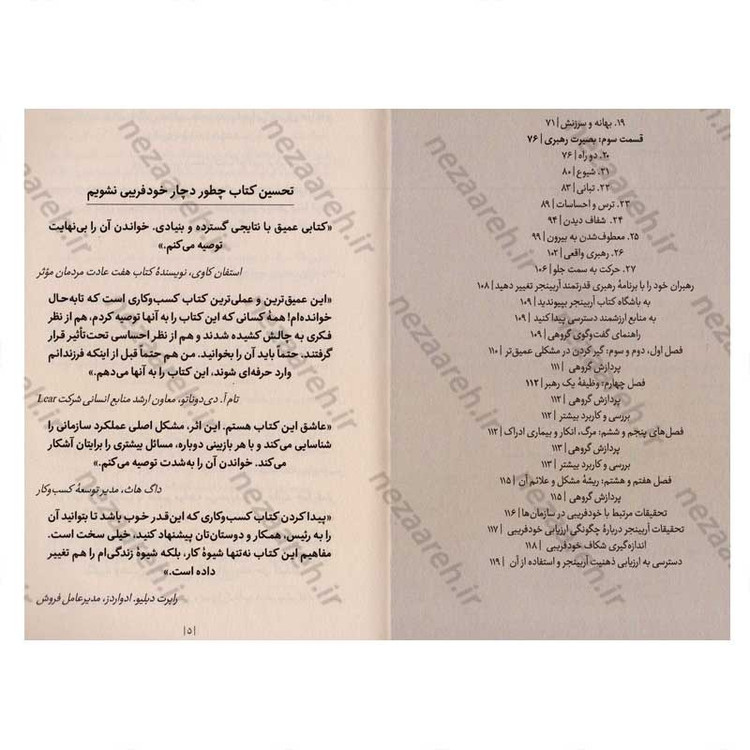 ۱۹. بهانه و سرزنش | ۷۱
قسمت سوم: بصیرت رهبری | ۷۶
۲۰. دو راه | ۷۶
۲۱. شیوع | ۸۰
۲۲. تبانی | ۸۳
۲۳. ترس و احساسات | ۸۹
۲۴. شفاف دیدن | ۹۴
۲۵. معطوف‌شدن به بیرون | ۹۹
۲۶. رهبری واقعی | ۱۰۲
۲۷. حرکت به سمت جلو | ۱۰۶
رهبران خود را با برنامهٔ رهبری قدرتمند آربینجر تغییر دهید | ۱۰۸
به باشگاه کتاب آربینجر بپیوندید | ۱۰۹
به منابع ارزشمند دسترسی پیدا کنید | ۱۰۹
راهنمای گفت‌وگوی گروهی | ۱۰۹
فصل اول، دوم و سوم: گیر کردن در مشکلی عمیق‌تر | ۱۱۰
پردازش گروهی | ۱۱۱
فصل چهارم: وظیفهٔ یک رهبر | ۱۱۲
پردازش گروهی | ۱۱۲
بررسی و کاربرد بیشتر | ۱۱۲
فصل‌های پنجم و ششم: مرگ، انکار و بیماری ادراک | ۱۱۲
پردازش گروهی | ۱۱۳
بررسی و کاربرد بیشتر | ۱۱۳
فصل هفتم و هشتم: ریشهٔ مشکل و علائم آن | ۱۱۵
پردازش گروهی | ۱۱۵
تحقیقات مرتبط با خودفریبی در سازمان‌ها | ۱۱۶
تحقیقات آربینجر دربارهٔ چگونگی ارزیابی خودفریبی | ۱۱۷
اندازه‌گیری شکاف خودفریبی | ۱۱۸
دسترسی به ارزیابی ذهنیت آربینجر و استفاده از آن | ۱۱۹
تحسین کتاب چطور دچار خودفریبی نشویم
«کتابی عمیق با نتایجی گسترده و بنیادی. خواندن آن را بی‌نهایت
توصیه می‌کنم.»
استفان کاوی، نویسندهٔ کتاب هفت عادت مردمان مؤثر
«این عمیق‌ترین و عملی‌ترین کتاب کسب‌وکاری است که تابه‌حال
خوانده‌ام! همهٔ کسانی که این کتاب را به آنها توصیه کردم، هم از نظر
فکری به چالش کشیده شدند و هم از نظر احساسی تحت‌تأثیر قرار
گرفتند. حتماً باید آن را بخوانید. من هم حتماً قبل از اینکه فرزندانم
وارد حرفه‌ای شوند، این کتاب را به آنها می‌دهم.»
تام آ. دی‌دوناتو، معاون ارشد منابع انسانی شرکت Lear
«عاشق این کتاب هستم. این اثر، مشکل اصلی عملکرد سازمانی را
شناسایی می‌کند و با هر بازبینی دوباره، مسائل بیشتری را برایتان آشکار
می‌کند. خواندن آن را به‌شدت توصیه می‌کنم.»
داگ هاث، مدیر توسعهٔ کسب‌وکار
«پیدا کردن کتاب کسب‌وکاری که این‌قدر خوب باشد تا بتوانید آن
را به رئیس، همکار و دوستان‌تان پیشنهاد کنید، خیلی سخت است.
مفاهیم این کتاب نه‌تنها شیوهٔ کار، بلکه شیوهٔ زندگی‌ام را هم تغییر
داده است.»
رابرت دبلیو. ادواردز، مدیرعامل فروش
| ۵ |
nezaareh.ir
nezaareh.ir
nezaareh.ir
nezaareh.ir
nezaareh.ir
nezaareh.ir
nezaareh.ir
nezaareh.ir